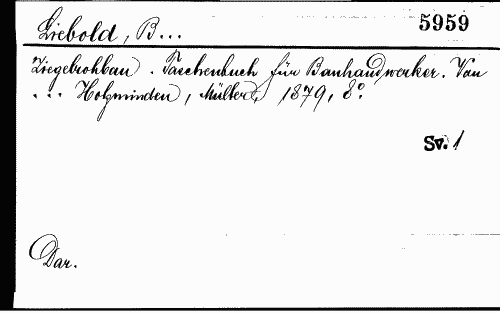 5959
Liebold, B...
Ziegelrohbau. Taschenbuch für Bauhandwerker. Von
... Holzminden, Müller, 1879, 8°.
Sv. 1
Dar.